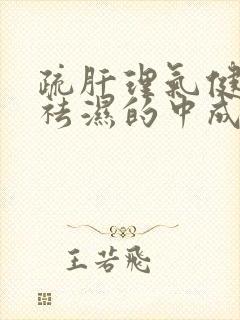 疏肝理气健
祛濕的中成
王若飛